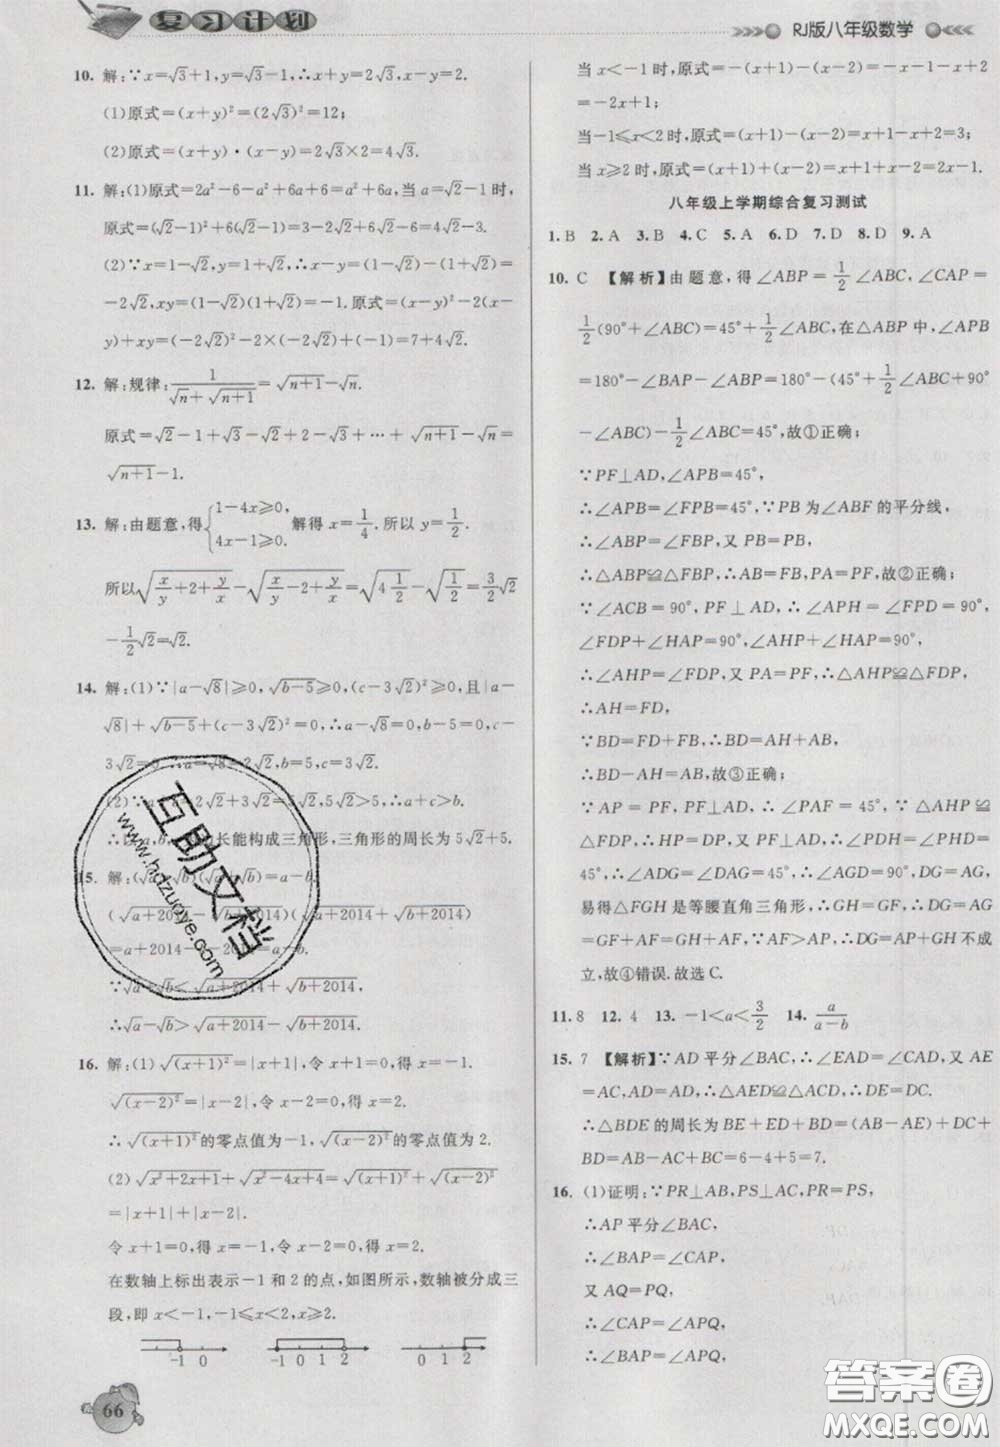 复习计划
RJ版八年级数学
10. 解:∵x=√3+1,y=√3-1,∴x+y=2√3,x-y=2.
(1)原式=(x+y)²=(2√3)²=12;
(2)原式=(x+y)·(x-y)=2√3×2=4√3.
11. 解:(1)原式=2a²-6-a²+6a+6=a²+6a,当a=√2-1时,
原式=(√2-1)²+6(√2-1)=3-2√2+6√2-6=4√2-3.
(2)∵x=1-√2,y=1+√2,∴x-y=(1-√2)-(1+√2)=
-2√2,xy=(1-√2)(1+√2)=-1.原式=(x-y)²-2(x-
y)+xy=(-2√2)²-2×(-2√2)+(-1)=7+4√2.
12. 解:规律:1/(√n+√(n+1))=√(n+1)-√n.
原式=√2-1+√3-√2+√4-√3+…+√(n+1)-√n=
√(n+1)-1.
13. 解:由题意,得{1-4x≥0, 4x-1≥0. 解得x=1/4.所以y=1/2.
所以√(x/y+2+y/x)-√(x/y-2+y/x)=√(4 1/2)-√(1/2)=3/2√2
-1/2√2=√2.
14. 解:(1)∵|a-√8|≥0,√(b-5)≥0,(c-3√2)²≥0,且|a-
√8|+√(b-5)+(c-3√2)²=0,∴a-√8=0,b-5=0,c-
3√2=0.∴a=√8=2√2,b=5,c=3√2.
(2)∵2√2+3√2=5√2,5√2>5,∴a+c>b.
∴以a,b,长能构成三角形,三角形的周长为5√2+5.
15. 解:(√a+√b)(√a-√b)=a-b,
(√(a+2014)-√(b+2014))(√(a+2014)+√(b+2014))
=a+2014-b-2014=a-b.
∵√a+√b<√(a+2014)+√(b+2014),
∴√a-√b>√(a+2014)-√(b+2014).
16. 解:(1)√(x+1)²=|x+1|,令x+1=0,得x=-1.
√(x-2)²=|x-2|,令x-2=0,得x=2.
∴√(x+1)²的零点值为-1,√(x-2)²的零点值为2.
(2)√(x²+2x+1)+√(x²-4x+4)=√(x+1)²+√(x-2)²
=|x+1|+|x-2|.
令x+1=0,得x=-1.令x-2=0,得x=2.
在数轴上标出表示-1和2的点,如图所示,数轴被分成三
段,即x<-1,-1≤x<2,x≥2.
-1 0
-1 0 1 2
0 1 2
66
当x<-1时,原式=-(x+1)-(x-2)=-x-1-x+2
=-2x+1;
当-1≤x<2时,原式=(x+1)-(x-2)=x+1-x+2=3;
当x≥2时,原式=(x+1)+(x-2)=x+1+x-2=2x-1.
八年级上学期综合复习测试
1. B 2. A 3. B 4. C 5. A 6. D 7. D 8. D 9. A
10. C 【解析】由题意,得∠ABP=1/2∠ABC,∠CAP=
1/2(90°+∠ABC)=45°+1/2∠ABC,在△ABP中,∠APB
=180°-∠BAP-∠ABP=180°-(45°+1/2∠ABC+90°
-∠ABC)-1/2∠ABC=45°,故①正确;
∵PF⊥AD,∠APB=45°,
∴∠APB=∠FPB=45°,∵PB为∠ABF的平分线,
∴∠ABP=∠FBP,又PB=PB,
∴△ABP≌△FBP,∴AB=FB,PA=PF,故②正确;
∵∠ACB=90°,PF⊥AD,∴∠APH=∠FPD=90°,
∠FDP+∠HAP=90°,∠AHP+∠HAP=90°,
∴∠AHP=∠FDP,又PA=PF,∴△AHP≌△FDP,
∴AH=FD,
∵BD=FD+FB,∴BD=AH+AB,
∴BD-AH=AB,故③正确;
∵AP=PF,PF⊥AD,∴∠PAF=45°.∵△AHP≌
△FDP,∴HP=DP,又PF⊥AD,∴∠HDP=∠PHD=
45°,∴∠ADG=∠DAG=45°,∴DG=AG,
易得△FGH是等腰直角三角形,∴GH=GF,∴DG=AG
=GF+AF=GH+AF,∵AF>AP,∴DG=AP+GH不成
立,故④错误.故选C.
11. 8 12. 4 13. -1<a<3/2 14. a/(a-b)
15. 7 【解析】∵AD平分∠BAC,∴∠EAD=∠CAD,又AE
=AC,AD=AD,∴△ADE≌△ADC,∴DE=DC.
∴△BDE的周长为BE+ED+BD=(AB-AE)+DC+
BD=AB-AC+BC=6-4+5=7.
16. (1)证明:∵PR⊥AB,PS⊥AC,PR=PS,
∴AP平分∠BAC,
∴∠BAP=∠CAP,
又AQ=PQ,
∴∠CAP=∠APQ,
∴∠BAP=∠APQ,
互助文档
www.hdzuoye.com
答案圈
MXQE.COM